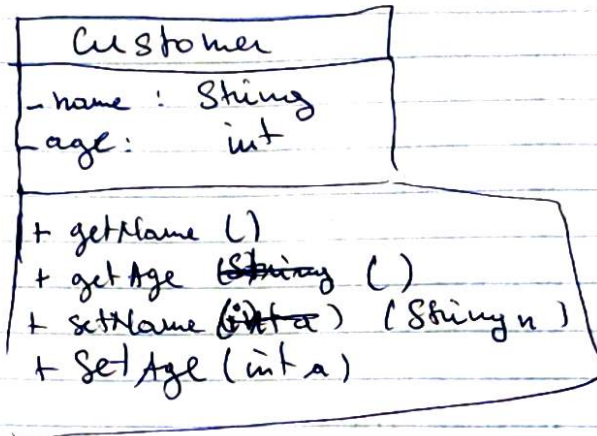 Customer
- name : String
- age : int
+ getName ()
+ getAge (String ()
+ setName (int a) (String n)
+ SetAge (int a)